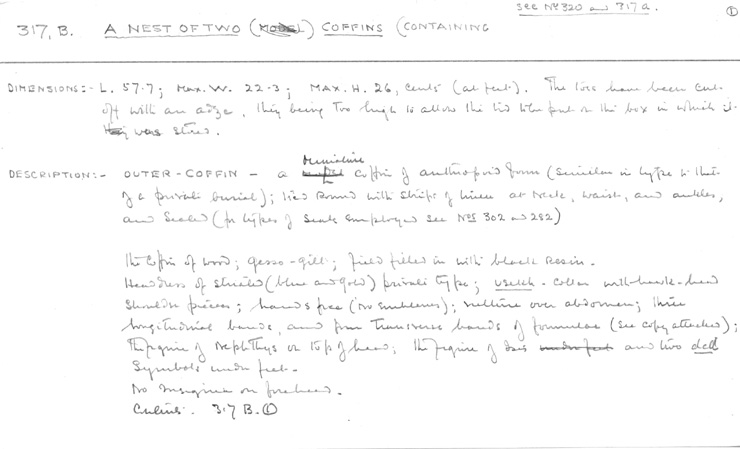 See Nos 320 and 317a.
①
317, B. A NEST OF TWO (MODEL) COFFINS (CONTAINING
DIMENSIONS:- L. 57.7; Max. W. 22.3; MAX. H. 26, cents (at feet). The toes have been cut
off with an adze, they being too high to allow the lid to be put on the box in which it
was stored.
DESCRIPTION:- OUTER-COFFIN - a miniature coffin of anthropoid form (similar in type to that
of a private burial); tied round with strips of linen at neck, waist, and ankles,
and sealed (for types of seals employed see Nos 302 and 282)
The coffin of wood; gesso-gilt; field filled in with black resin.
Headdress of striated (blue and gold) private type; usekh-collar with hawk-head
shoulder pieces; hands free (no emblems); vulture over abdomen; three
longitudinal bands, and four transverse bands of formulae (see copy attached);
the figure of Nephthys on top of head; the figure of Isis under feet and two ded
symbols under feet.
No insignia on forehead.
317 B. ①